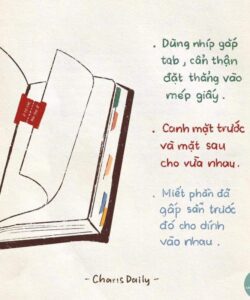 . Dũng nhíp gấp
tab, cẩn thận
đặt thẳng vào
mép giấy.
. Canh mặt trước
và mặt sau
cho vừa nhau.
. Miết phần đã
gấp sẵn trước
đó cho dính
vào nhau.
- Charis Daily -